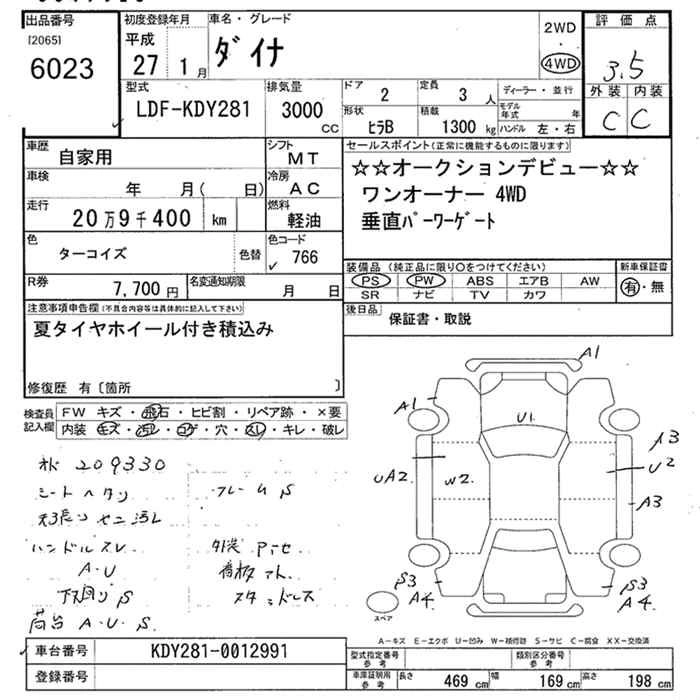 出品番号
[2065]
6023
初度登録年月
平成
27 1月
車名・グレード
ダイナ
2WD
・
4WD
評価点
3.5
外装 内装
C C
型式
LDF-KDY281
排気量
3000 cc
ドア
2
定員
3 人
ディーラー・並行
モデル年式 年
形状
ﾋﾗB
積載
1300 kg
ハンドル 左・右
車歴
自家用
シフト
MT
車検
年 月( 日)
冷房
AC
走行
20万9千400 km
燃料
軽油
色
ターコイズ
色替
色コード
766
R券
7,700円
名変通知期限
月 日
セールスポイント(正常に機能するものに限ります)
☆☆オークションデビュー☆☆
ワンオーナー 4WD
垂直ﾊﾟｰﾜｰｹﾞｰﾄ
装備品 (純正品に限り○をつけてください)
PS PW ABS エアB AW
SR ナビ TV カワ
新車保証書
有・無
後日品
保証書・取説
注意事項申告欄(不具合内容等は具体的に記入して下さい)
夏タイヤホイール付き積込み
修復歴 有〔箇所 〕
検査員記入欄
FW キズ・飛石・ヒビ割・リペア跡・×要
内装 キズ・汚レ・コゲ・穴・スレ・キレ・破レ
209330
シートヘタリ
フレームS
天張り ヤニ汚レ
ハンドルスレ
A・U
下回りS
スタッドレス
荷台 A・U・S.
A1
A1
U1
A3
U2
UA2.
W2.
A3
S3
A4.
S3
A4.
スペア
A-キズ E-エクボ U-凹み W-補修跡 S-サビ C-腐食 XX-交換済
車台番号
KDY281-0012991
登録番号
型式指定番号
参考
類別区分番号
参考
車庫証明用
参考
長さ 469 cm 幅 169 cm 高さ 198 cm